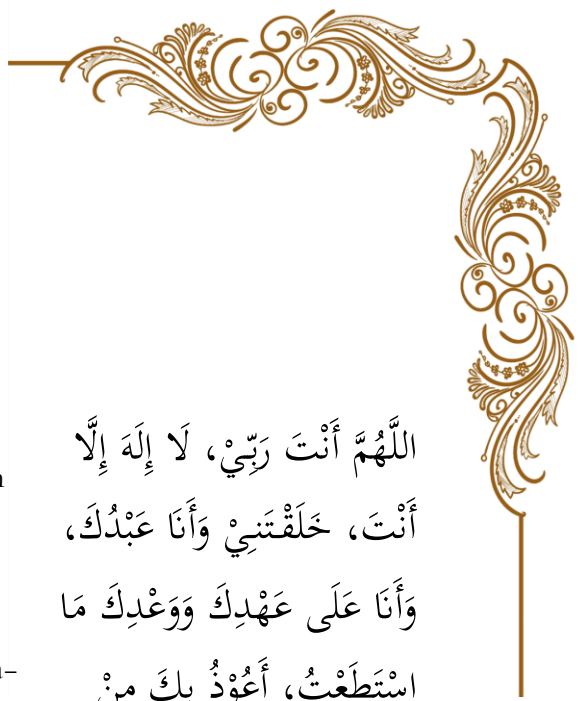 اللَّهُمَّ أَنْتَ رَبِّيْ، لَا إِلَهَ إِلَّا
أَنْتَ، خَلَقْتَنِيْ وَأَنَا عَبْدُكَ،
وَأَنَا عَلَى عَهْدِكَ وَوَعْدِكَ مَا
اسْتَطَعْتُ، أَعُوْذُ بِكَ مِنْ